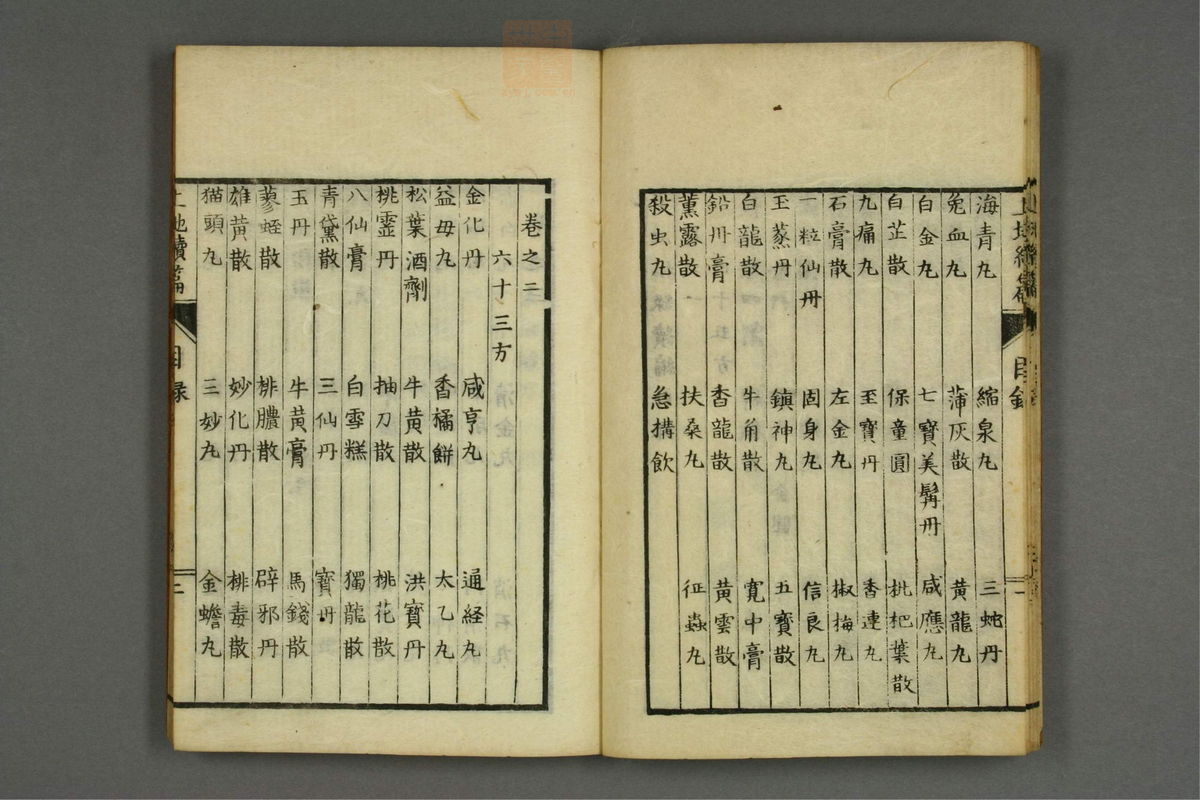 海青丸 縮泉丸 三蛇丹
兔血丸 蒲灰散 黃龍丸
白金丸 七寶美髯丹 咸應丸
白芷散 保童圓 枇杷葉散
九痛丸 至寶丹 香連丸
石膏散 左金丸 椒梅丸
一粒仙丹 固身丸 信良丸
玉蒸丹 鎮神丸 五寶散
白龍散 牛角散 寬中膏
鉛丹膏 香龍散 黃雲散
薰露散 扶桑丸 征蟲丸
殺虫丸 急搆飲
卷之二
六十三方
金化丹 咸亨丸 通経丸
益母丸 香橘餅 太乙丸
松葉酒劑 牛黃散 洪寶丹
桃霊丹 抽刀散 桃花散
八仙膏 白雪糕 獨龍散
青黛散 三仙丹 寶丹
玉丹 牛黃膏 馬錢散
蓼蛭散 排膿散 辟邪丹
雄黃散 妙化丹 排毒散
猫頭丸 三妙丸 金蟾丸
目録